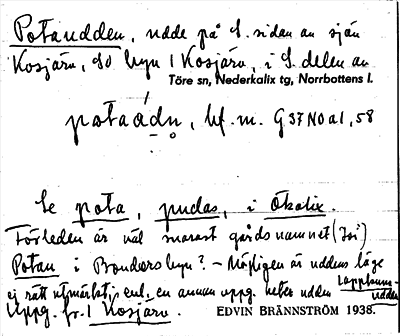 Potaudden, udde på S. sidan av sjön
Kosjärv, SO byn 1 Kosjärv, i S. delen av
Töre sn, Nederkalix tg, Norrbottens l.
potaádn, bf. m. G 37 NO a 1, 58
Se pota, pudas, i Ökalix.
Förleden är väl snarast gårdsnamnet (Joi)
Potau i Bondersbyn? – Möjligen är uddens läge
ej rätt utmärkt; enl. en annan uppg. heter udden Lapptomtudden
Uppg. fr. 1 Kosjärv. EDVIN BRÄNNSTRÖM 1938.